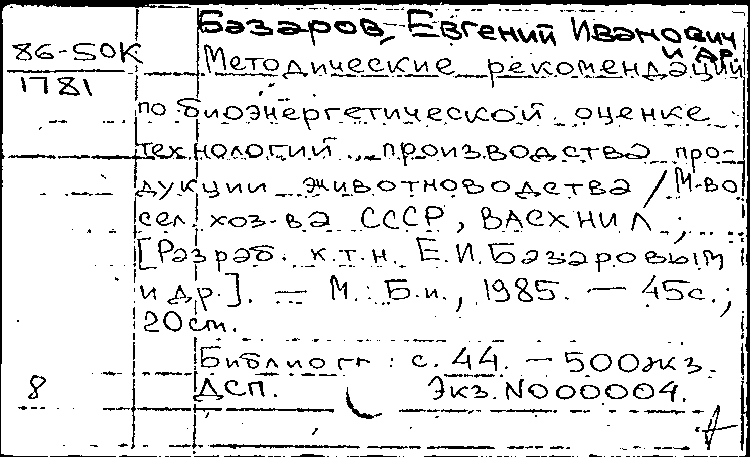 Базаров, Евгений Иванович
и др.
86-50К
1781
Методические рекомендации
по биоэнергетической оценке
технологий производства про-
дукции животноводства / М-во
сел. хоз-ва СССР, ВАСХНИЛ;
[Разраб. к.т.н. Е.И. Базаровым
и др.]. — М.: Б.и., 1985. — 45с.;
20см.
Библиогр: с. 44. — 500экз.
8
ДСП. Экз. N000004.